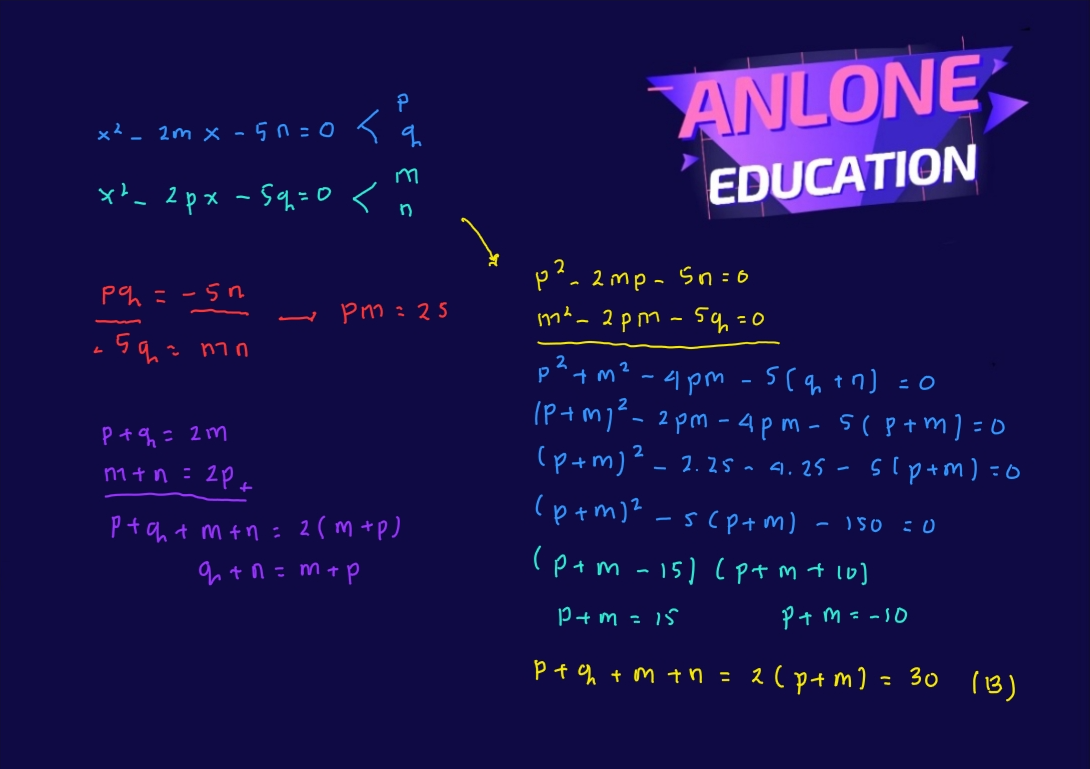 ANLONE
EDUCATION
x² - 2mx - 5n = 0 < p
q
x² - 2px - 5q = 0 < m
n
pq = -5n → pm = 25
-5q = mn
p+q = 2m
m+n = 2p +
p+q+m+n = 2(m+p)
q+n = m+p
p² - 2mp - 5n = 0
m² - 2pm - 5q = 0
p² + m² - 4pm - 5(q+n) = 0
(p+m)² - 2pm - 4pm - 5(p+m) = 0
(p+m)² - 2.25 - 4.25 - 5(p+m) = 0
(p+m)² - 5(p+m) - 150 = 0
(p+m - 15) (p+m + 10)
p+m = 15 p+m = -10
p+q+m+n = 2(p+m) = 30 (B)